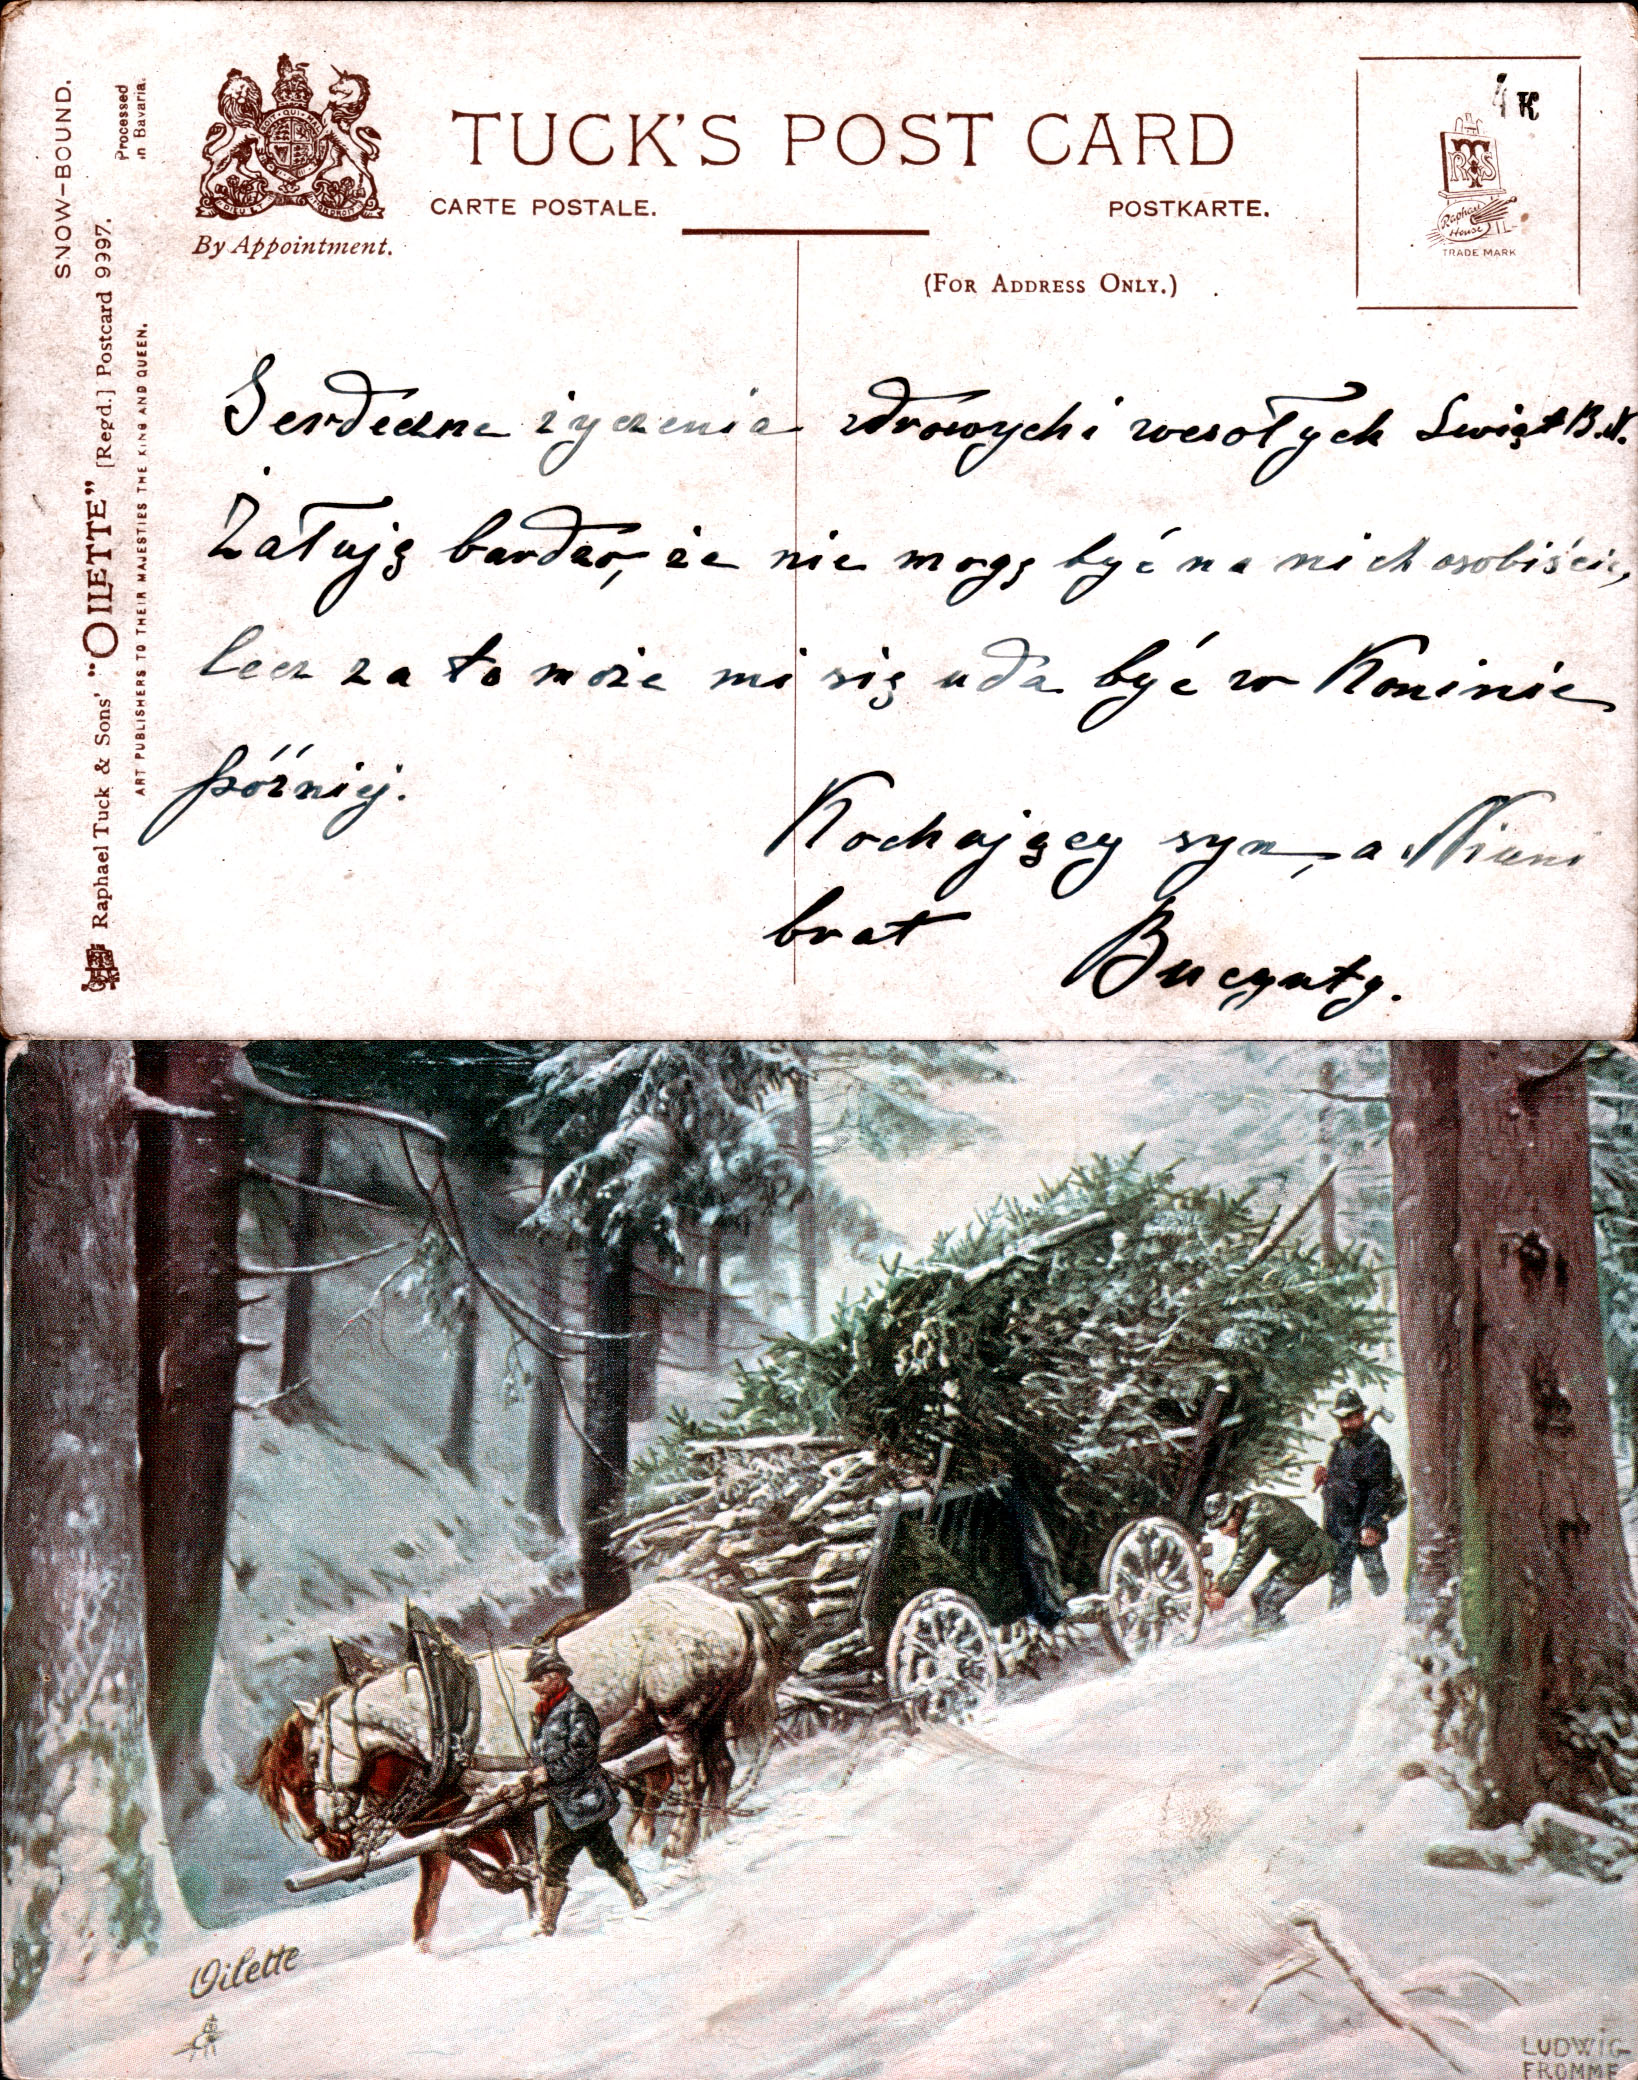 SNOW-BOUND.
Processed
in Bavaria.
Raphael Tuck & Sons' "OILETTE" [Regd.] Postcard 9997.
ART PUBLISHERS TO THEIR MAJESTIES THE KING AND QUEEN.
By Appointment.
TUCK'S POST CARD
CARTE POSTALE.
POSTKARTE.
(FOR ADDRESS ONLY.)
4 K
RTS
Raphael
House
TRADE MARK
Serdeczne życzenia zdrowych i wesołych Swiąt B.N.
Żałuję bardzo, że nie mogę być na nich osobiście,
lecz za to może mi się uda być w Koninie
póżniej.
Kochający syn, a Niuni
brat
Oilette
LUDWIG
FROMME